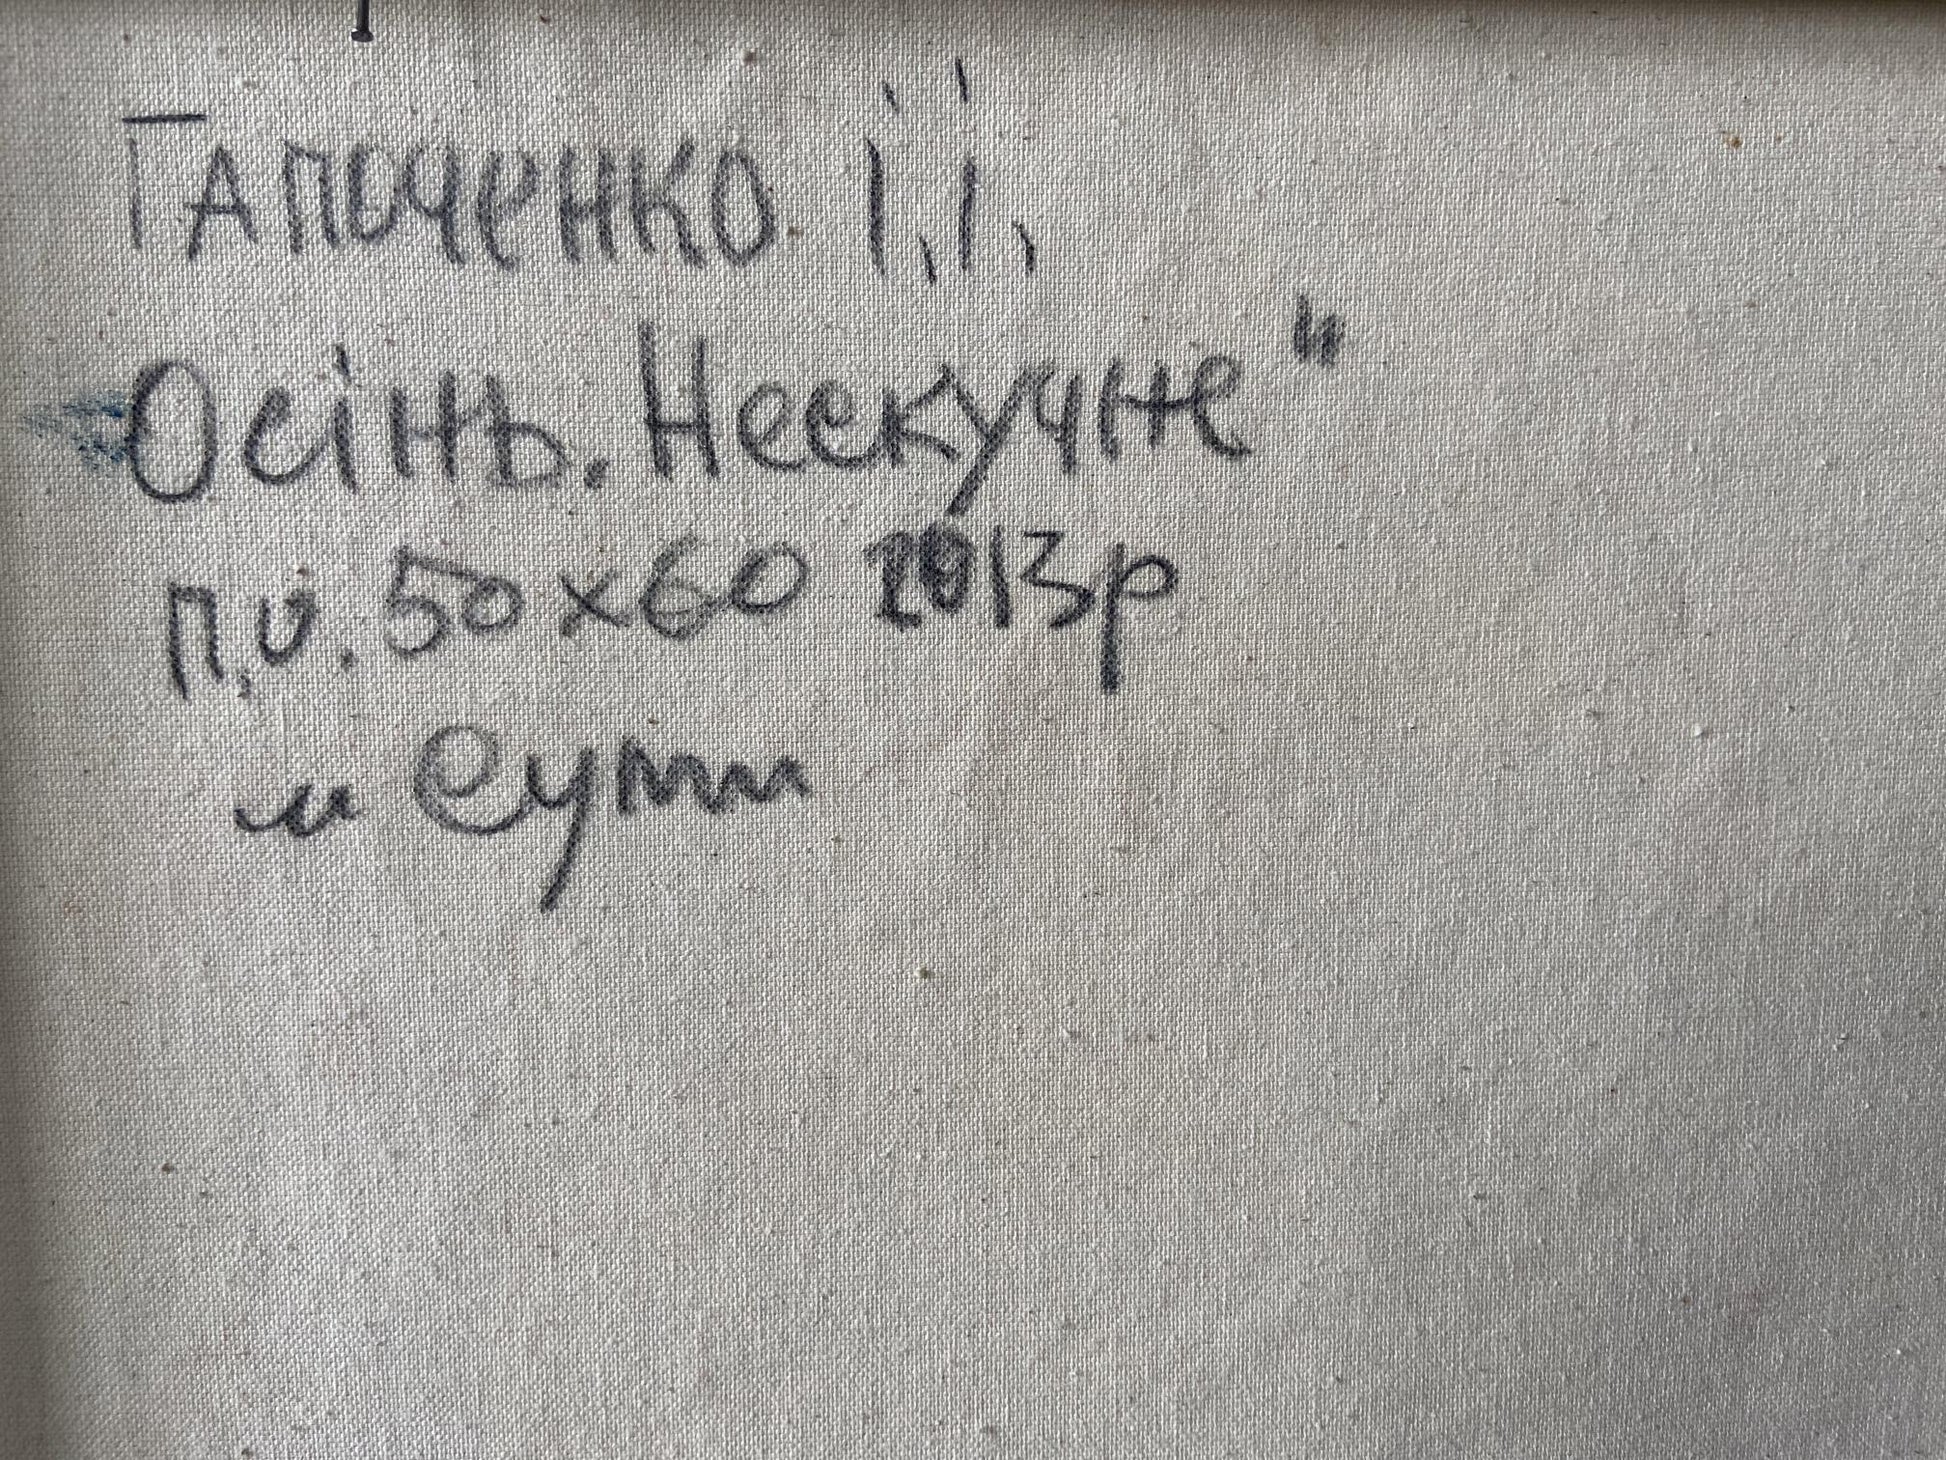 Гапоченко І.І.
Осінь. Нескучне"
п.о. 50х60 2013р
м Суми